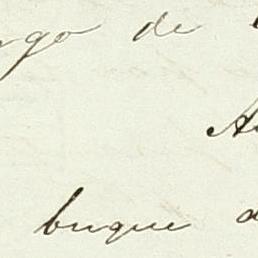 rgo de
A
buque d